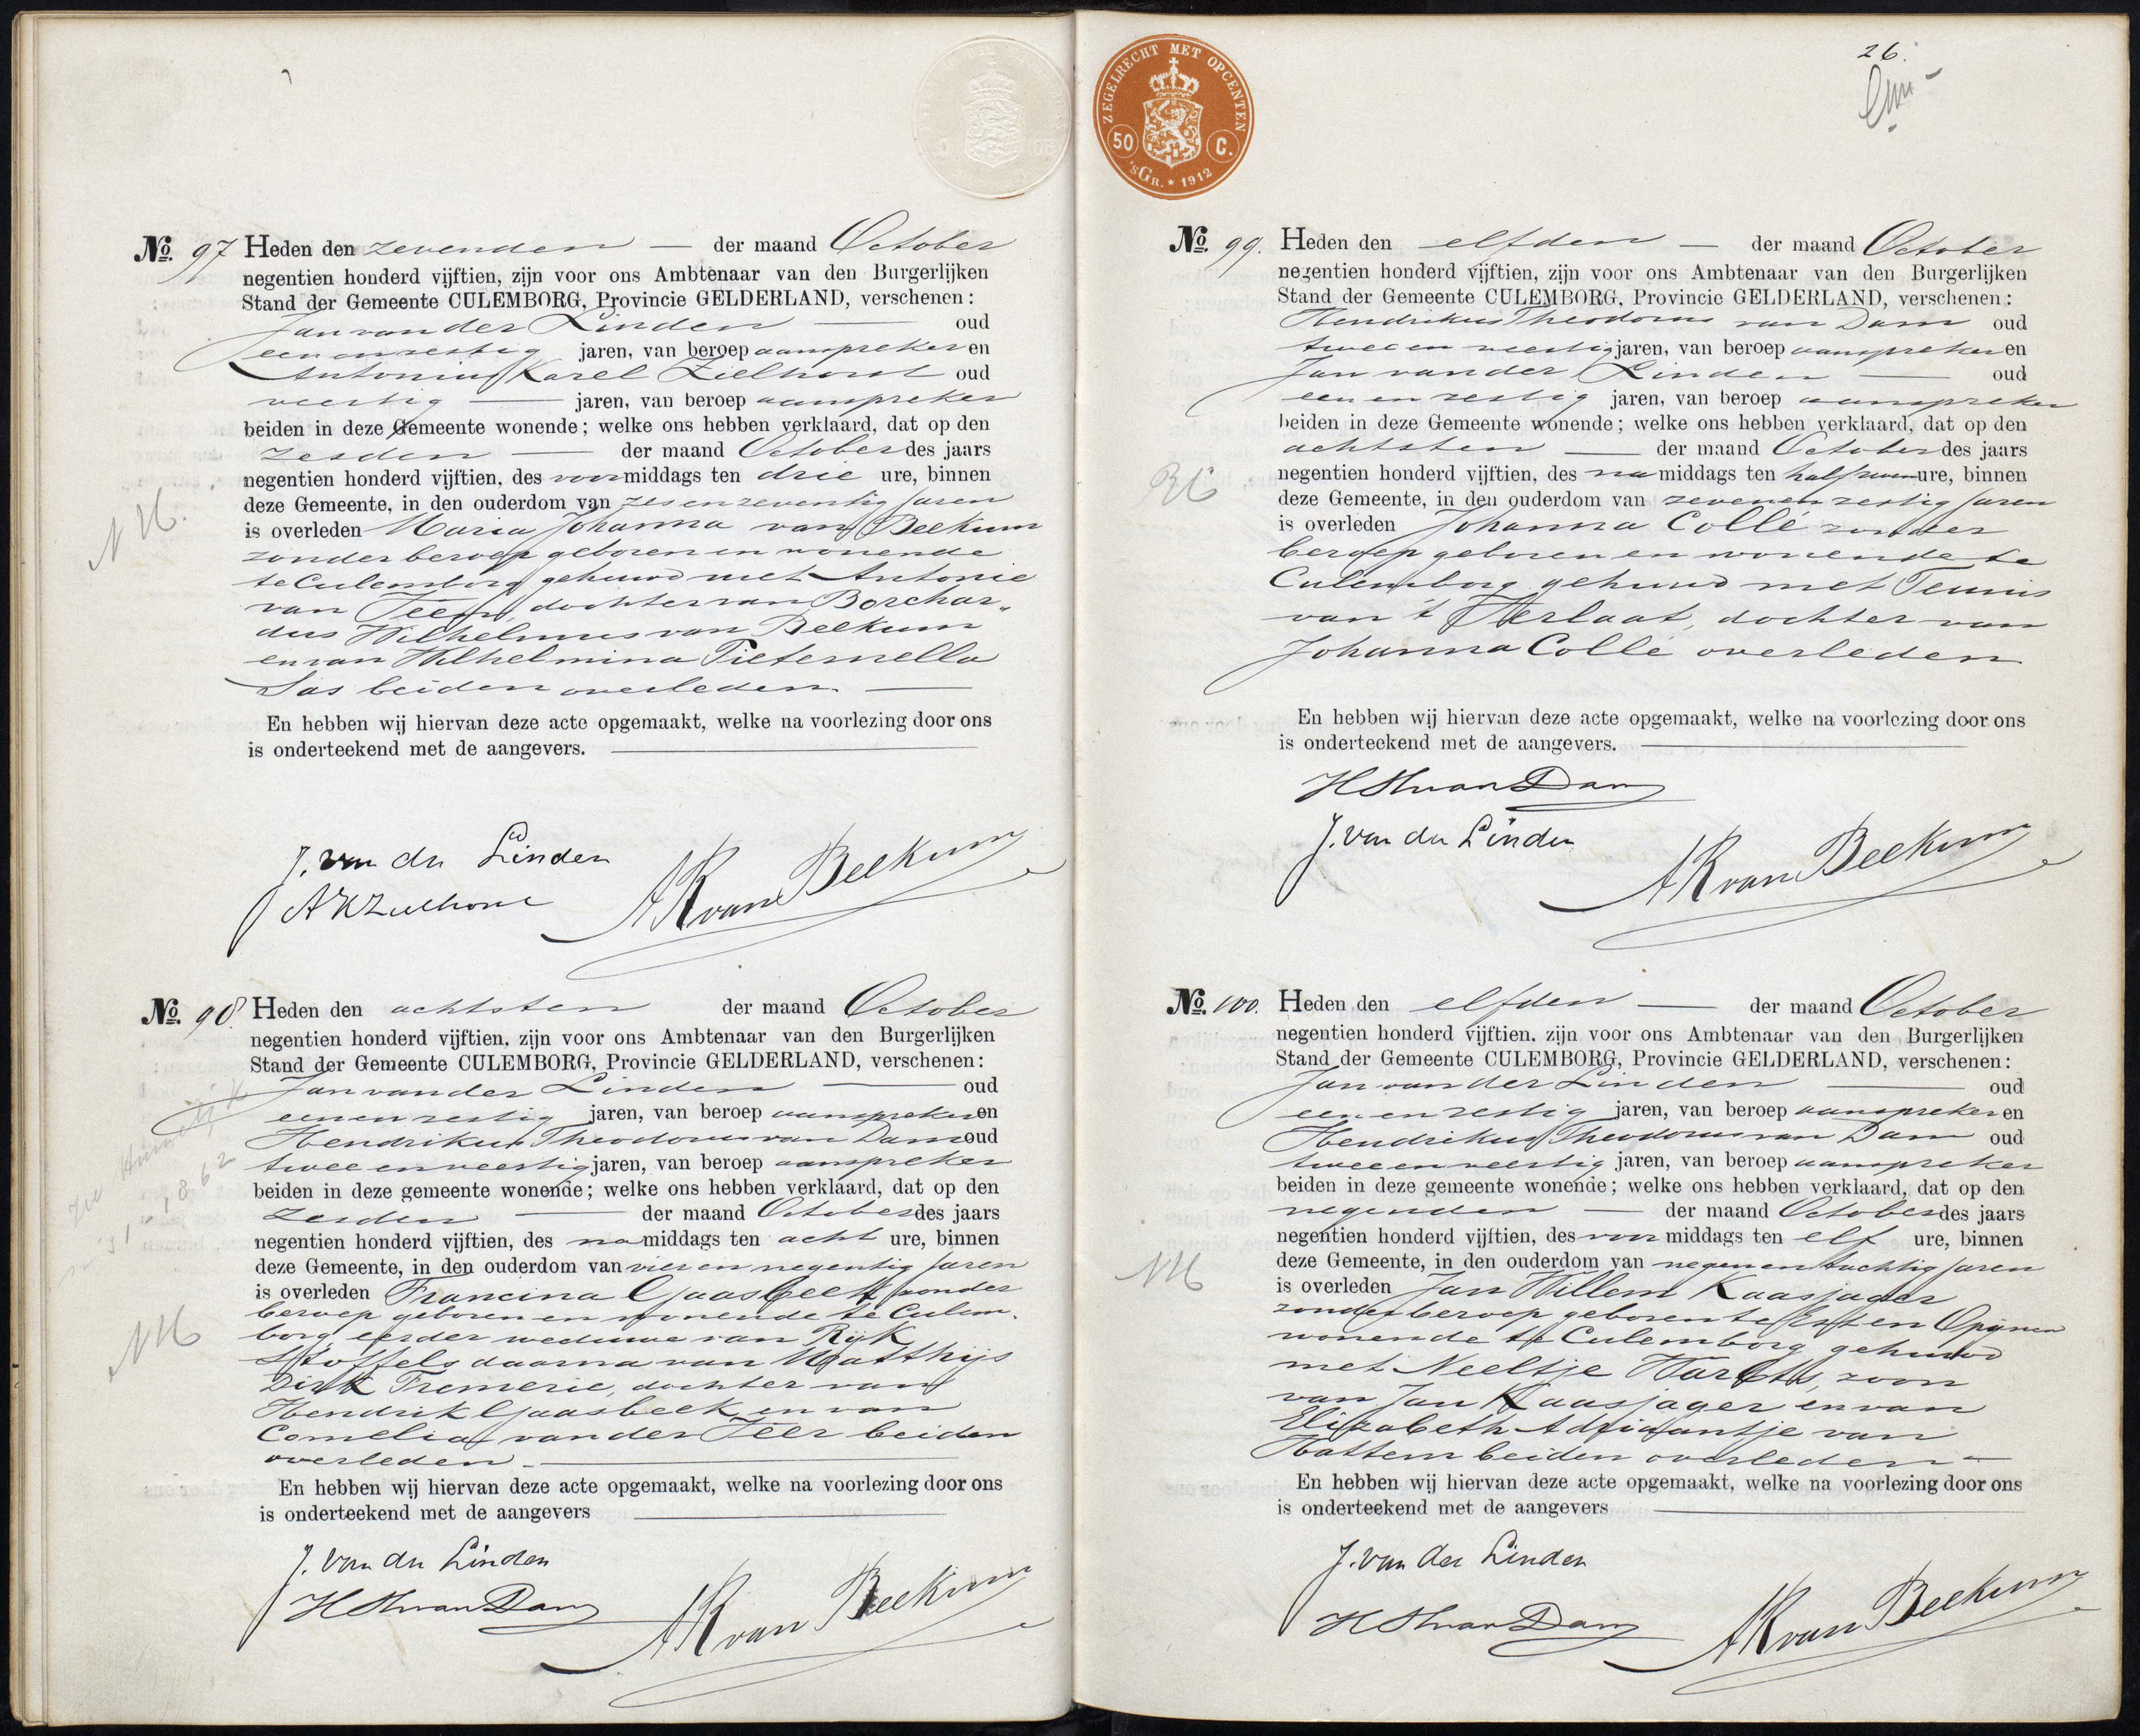 No. 97 Heden den zevenden — der maand October
negentien honderd vijftien, zijn voor ons Ambtenaar van den Burgerlijken
Stand der Gemeente CULEMBORG, Provincie GELDERLAND, verschenen:
Jan van der Linden — oud
een en zestig jaren, van beroep aanspreker en
Antonius Karel Zielhorst oud
veertig — jaren, van beroep aanspreker
beiden in deze Gemeente wonende; welke ons hebben verklaard, dat op den
zesden — der maand October des jaars
negentien honderd vijftien, des voormiddags ten drie ure, binnen
deze Gemeente, in den ouderdom van zes en zeventig jaren
is overleden Maria Johanna van Beekum
zonder beroep geboren en wonende
te Culemborg gehuwd met Antonie
van Teeff, dochter van Borchar„
dus Wilhelmus van Beekum
en van Wilhelmina Pieternella
Sas beiden overleden. —
NH.
En hebben wij hiervan deze acte opgemaakt, welke na voorlezing door ons
is onderteekend met de aangevers.
J. van der Linden
AKZielhorst
AK van Beekum
No. 98. Heden den achtsten der maand October
negentien honderd vijftien, zijn voor ons Ambtenaar van den Burgerlijken
Stand der Gemeente CULEMBORG, Provincie GELDERLAND, verschenen:
Jan van der Linden — oud
een en zestig jaren, van beroep aanspreker en
Hendrikus Theodorus van Dam oud
twee en veertig jaren, van beroep aanspreker
beiden in deze gemeente wonende; welke ons hebben verklaard, dat op den
zesden — der maand October des jaars
negentien honderd vijftien, des namiddags ten acht ure, binnen
deze Gemeente, in den ouderdom van vier en negentig jaren
is overleden Francina Gaasbeek zonder
beroep geboren en wonende te Culem-
borg eerder weduwe van Rijk
Stoffels daarna van Matthijs
Dirk Fremerie, dochter van
Hendrik Gaasbeek en van
Cornelia van der Teer beiden
overleden. —
1862
NH
En hebben wij hiervan deze acte opgemaakt, welke na voorlezing door ons
is onderteekend met de aangevers
J. van der Linden
HThvanDam
AK van Beekum
ZEGELRECHT MET OPCENTEN
50 C.
'sGR. * 1912
26.
No. 99. Heden den elfden — der maand October
negentien honderd vijftien, zijn voor ons Ambtenaar van den Burgerlijken
Stand der Gemeente CULEMBORG, Provincie GELDERLAND, verschenen:
Hendrikus Theodorus van Dam oud
twee en veertig jaren, van beroep aanspreker en
Jan van der Linden — oud
een en zestig jaren, van beroep aanspreker
beiden in deze Gemeente wonende; welke ons hebben verklaard, dat op den
achtsten — der maand October des jaars
negentien honderd vijftien, des namiddags ten half zeven ure, binnen
deze Gemeente, in den ouderdom van zeven en zestig jaren
is overleden Johanna Collé zonder
beroep geboren en wonende te
Culemborg gehuwd met Teunis
van 't Verlaat, dochter van
Johanna Collé overleden
En hebben wij hiervan deze acte opgemaakt, welke na voorlezing door ons
is onderteekend met de aangevers.
HThvanDam
J. van der Linden
AK van Beekum
No. 100. Heden den elfden — der maand October
negentien honderd vijftien. zijn voor ons Ambtenaar van den Burgerlijken
Stand der Gemeente CULEMBORG, Provincie GELDERLAND, verschenen:
Jan van der Linden — oud
een en zestig jaren, van beroep aanspreker en
Hendrikus Theodorus van Dam oud
twee en veertig jaren, van beroep aanspreker
beiden in deze gemeente wonende; welke ons hebben verklaard, dat op den
negenden — der maand October des jaars
negentien honderd vijftien, des voormiddags ten elf ure, binnen
deze Gemeente, in den ouderdom van negen en tachtig jaren
is overleden Jan Willem Kaasjager
zonder beroep geboren te Est en Opijnen
wonende te Culemborg gehuwd
met Neeltje zoon
van Jan Kaasjager en van
Elizabeth Adriaantje van
Hattem beiden overleden —
NH
En hebben wij hiervan deze acte opgemaakt, welke na voorlezing door ons
is onderteekend met de aangevers
J. van der Linden
HThvanDam
AK van Beekum